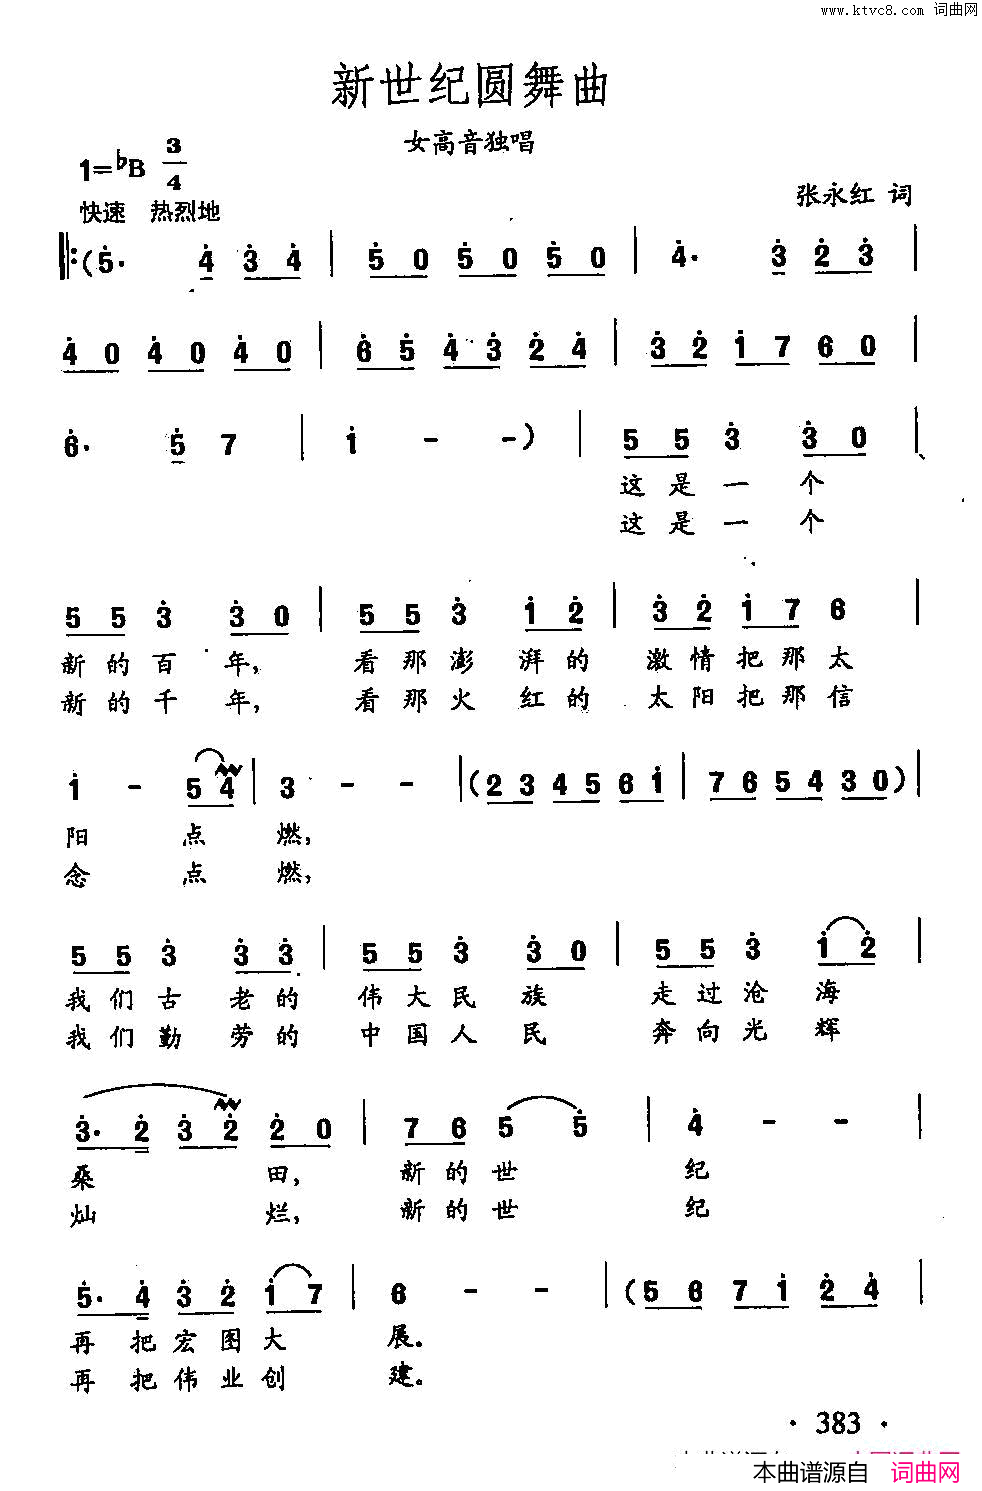 www.ktvc8.com 词曲网
新世纪圆舞曲
女高音独唱
1=♭B 3/4
快速 热烈地
张永红 词
‖:(5· 4 3 4 | 5 0 5 0 5 0 | 4· 3 2 3 |
4 0 4 0 4 0 | 6 5 4 3 2 4 | 3 2 1 7 6 0 |
6· 5 7 | 1 - -) | 5 5 3 3 0 |
这是一 个
这是一 个
5 5 3 3 0 | 5 5 3 1 2 | 3 2 1 7 6
新的百 年, 看那澎 湃的 激情把那太
新的千 年, 看那火 红的 太阳把那信
1 - 5 4 | 3 - - | (2 3 4 5 6 1 | 7 6 5 4 3 0) |
阳 点 燃,
念 点 燃,
5 5 3 3 3 | 5 5 3 3 0 | 5 5 3 1 2 |
我们古 老的 伟大民 族 走过沧 海
我们勤 劳的 中国人 民 奔向光 辉
3· 2 3 2 2 0 | 7 6 5 5 | 4 - - |
桑 田, 新的世 纪
灿 烂, 新的世 纪
5· 4 3 2 1 7 | 6 - - | (5 6 7 1 2 4 |
再 把宏图大 展。
再 把伟业创 建。
· 383 ·
本曲谱源自 词曲网